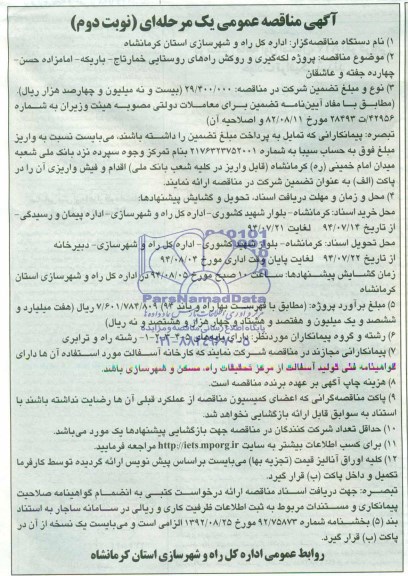 آگهی مناقصه عمومی یک مرحله‌ای (نوبت دوم)
۱) نام دستگاه مناقصه‌گزار: اداره کل راه و شهرسازی استان کرمانشاه
۲) موضوع مناقصه: پروژه لکه‌گیری و روکش راه‌های روستایی خمارتاج- باریکه- امامزاده حسن-
چهارده جفته و عاشقان
۳) نوع و مبلغ تضمین شرکت در مناقصه: ۲۹/۴۰۰/۰۰۰ (بیست و نه میلیون و چهارصد هزار ریال).
(مطابق با مفاد آیین‌نامه تضمین برای معاملات دولتی مصوبه هیئت وزیران به شماره
۴۲۹۵۶/ت ۲۸۴۹۳ مورخ ۸۲/۰۸/۱۱ و اصلاحیه آن)
تبصره: پیمانکارانی که تمایل به پرداخت مبلغ تضمین را داشته باشند، می‌بایست نسبت به واریز
مبلغ فوق به حساب سیبا به شماره ۲۱۷۶۴۳۳۷۵۲۰۰۱ بنام تمرکز وجوه سپرده نزد بانک ملی شعبه
میدان امام خمینی (ره) کرمانشاه (قابل واریز در کلیه شعب بانک ملی) اقدام و فیش واریزی آن را در
پاکت (الف) به عنوان تضمین شرکت در مناقصه ارائه نمایند.
۴) محل و زمان و مهلت دریافت اسناد، تحویل و گشایش پیشنهادها:
محل خرید اسناد: کرمانشاه- بلوار شهید کشوری- اداره کل راه و شهرسازی- اداره پیمان و رسیدگی-
از تاریخ ۹۴/۰۷/۱۴ لغایت ۹۴/۰۷/۲۱
محل تحویل اسناد: کرمانشاه- بلوار شهید کشوری- اداره کل راه و شهرسازی- دبیرخانه
از تاریخ ۹۴/۰۷/۲۲ لغایت پایان وقت اداری مورخ ۹۴/۰۸/۰۴
زمان گشایش پیشنهادها: ساعت ۱۰ صبح مورخ ۹۴/۰۸/۰۵ در اداره کل راه و شهرسازی استان
کرمانشاه
۵) مبلغ برآورد پروژه: (مطابق با فهرست بها راه و باند ۹۴) ۷/۶۰۱/۷۸۴/۸۰۹ ریال (هفت میلیارد و
ششصد و یک میلیون و هفتصد و هشتاد و چهار هزار و هشتصد و نه ریال)
۶) رشته و گروه پیمانکاران موردنظر: دارای پایه‌های ۵-۴-۳-۲-۱- رشته راه و ترابری
۷) پیمانکارانی مجازند در مناقصه شرکت نمایند که کارخانه آسفالت مورد استفاده آن ها دارای
گواهینامه فنی تولید آسفالت از مرکز تحقیقات راه، مسکن و شهرسازی باشد.
۸) هزینه چاپ آگهی بر عهده برنده مناقصه است.
۹) پاکت مناقصه‌گرانی که اعضای کمیسیون مناقصه از عملکرد قبلی آن ها رضایت نداشته باشند با
استناد به سوابق قابل ارائه بازگشایی نخواهد شد.
۱۰) حداقل تعداد شرکت کنندگان در مناقصه جهت بازگشایی پیشنهادها یک مورد می‌باشد.
۱۱) برای کسب اطلاعات بیشتر به سایت http://iets.mporg.ir مراجعه فرمایید.
۱۲) کلیه اوراق آنالیز قیمت (تجزیه بها) می‌بایست براساس پیش نویس ارائه گردیده توسط کارفرما
تکمیل و داخل پاکت (ب) قرار گیرد.
تبصره: جهت دریافت اسناد مناقصه ارائه درخواست کتبی به انضمام گواهینامه صلاحیت
پیمانکاری و مستندات مربوط به ثبت اطلاعات ظرفیت کاری و ریالی در سامانه ساجار به استناد
بند (۵) بخشنامه شماره ۹۲/۷۵۸۷۳ مورخ ۱۳۹۲/۰۸/۲۵ الزامی است و می‌بایست یک نسخه از آن در
پاکت (ب) قرار گیرد.
روابط عمومی اداره کل راه و شهرسازی استان کرمانشاه
ParsNamadData